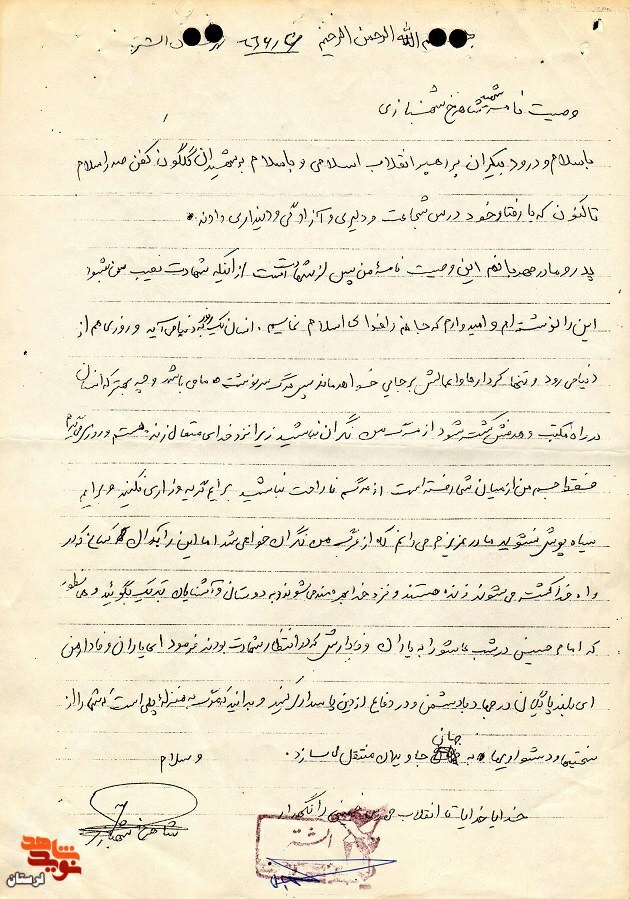 بسم الله الرحمن الرحیم
وصیت نامه شهید شاهرخ شهبازی
با سلام و درود بیکران بر رهبر انقلاب اسلامی و با سلام بر شهیدان گلگون کفن صدر اسلام
تاکنون که با رفتار خود درس شجاعت و دلیری و آزادگی و دینداری دادند.
پدر و مادر مهربانم این وصیت نامۀ من پس از شهادت است از آنکه شهادت نصیب من بشود
این را نوشته ام و امیدوارم که جانم را فدای اسلام نمایم. انسان یک روز به دنیا می آید و روزی هم از
دنیا می رود و تنها کردارها و اعمالش بر جای خواهد ماند پس مرگ سرنوشت ما می باشد و چه بهتر که انسان
در راه مکتب و هدفش کشته شود از مرگ من نگران نباشید زیرا نزد خدای متعال زنده هستم و روزی
فقط جسم من از میان شما رفته است از مرگم ناراحت نباشید برایم گریه و زاری نکنید و برایم
سیاه پوش نشوید مادر عزیزم می دانم که از مرگ من نگران خواهی شد اما این را بدان کسانی که در
راه خدا کشته می شوند زنده هستند و نزد خدا بهره مند می شوند و به دوستان و آشنایان تبریک بگوئید و همانطور
که امام حسین در شب عاشورا به یاران وفادارش که در انتظار شهادت بودند فرمود ای یاران وفادار من
ای بلند پایگان در جهاد با دشمن و در دفاع از دین پاسداری کنید و بدانید که مرگ به منزله پلی است که شما را از
سختیها و دشواریها به جهانی جاویدان منتقل می سازد. و سلام
خدایا خدایا تا انقلاب مهدی خمینی را نگهدار
شاهرخ شهبازی
الشتر
نوید شاهد
لرستان